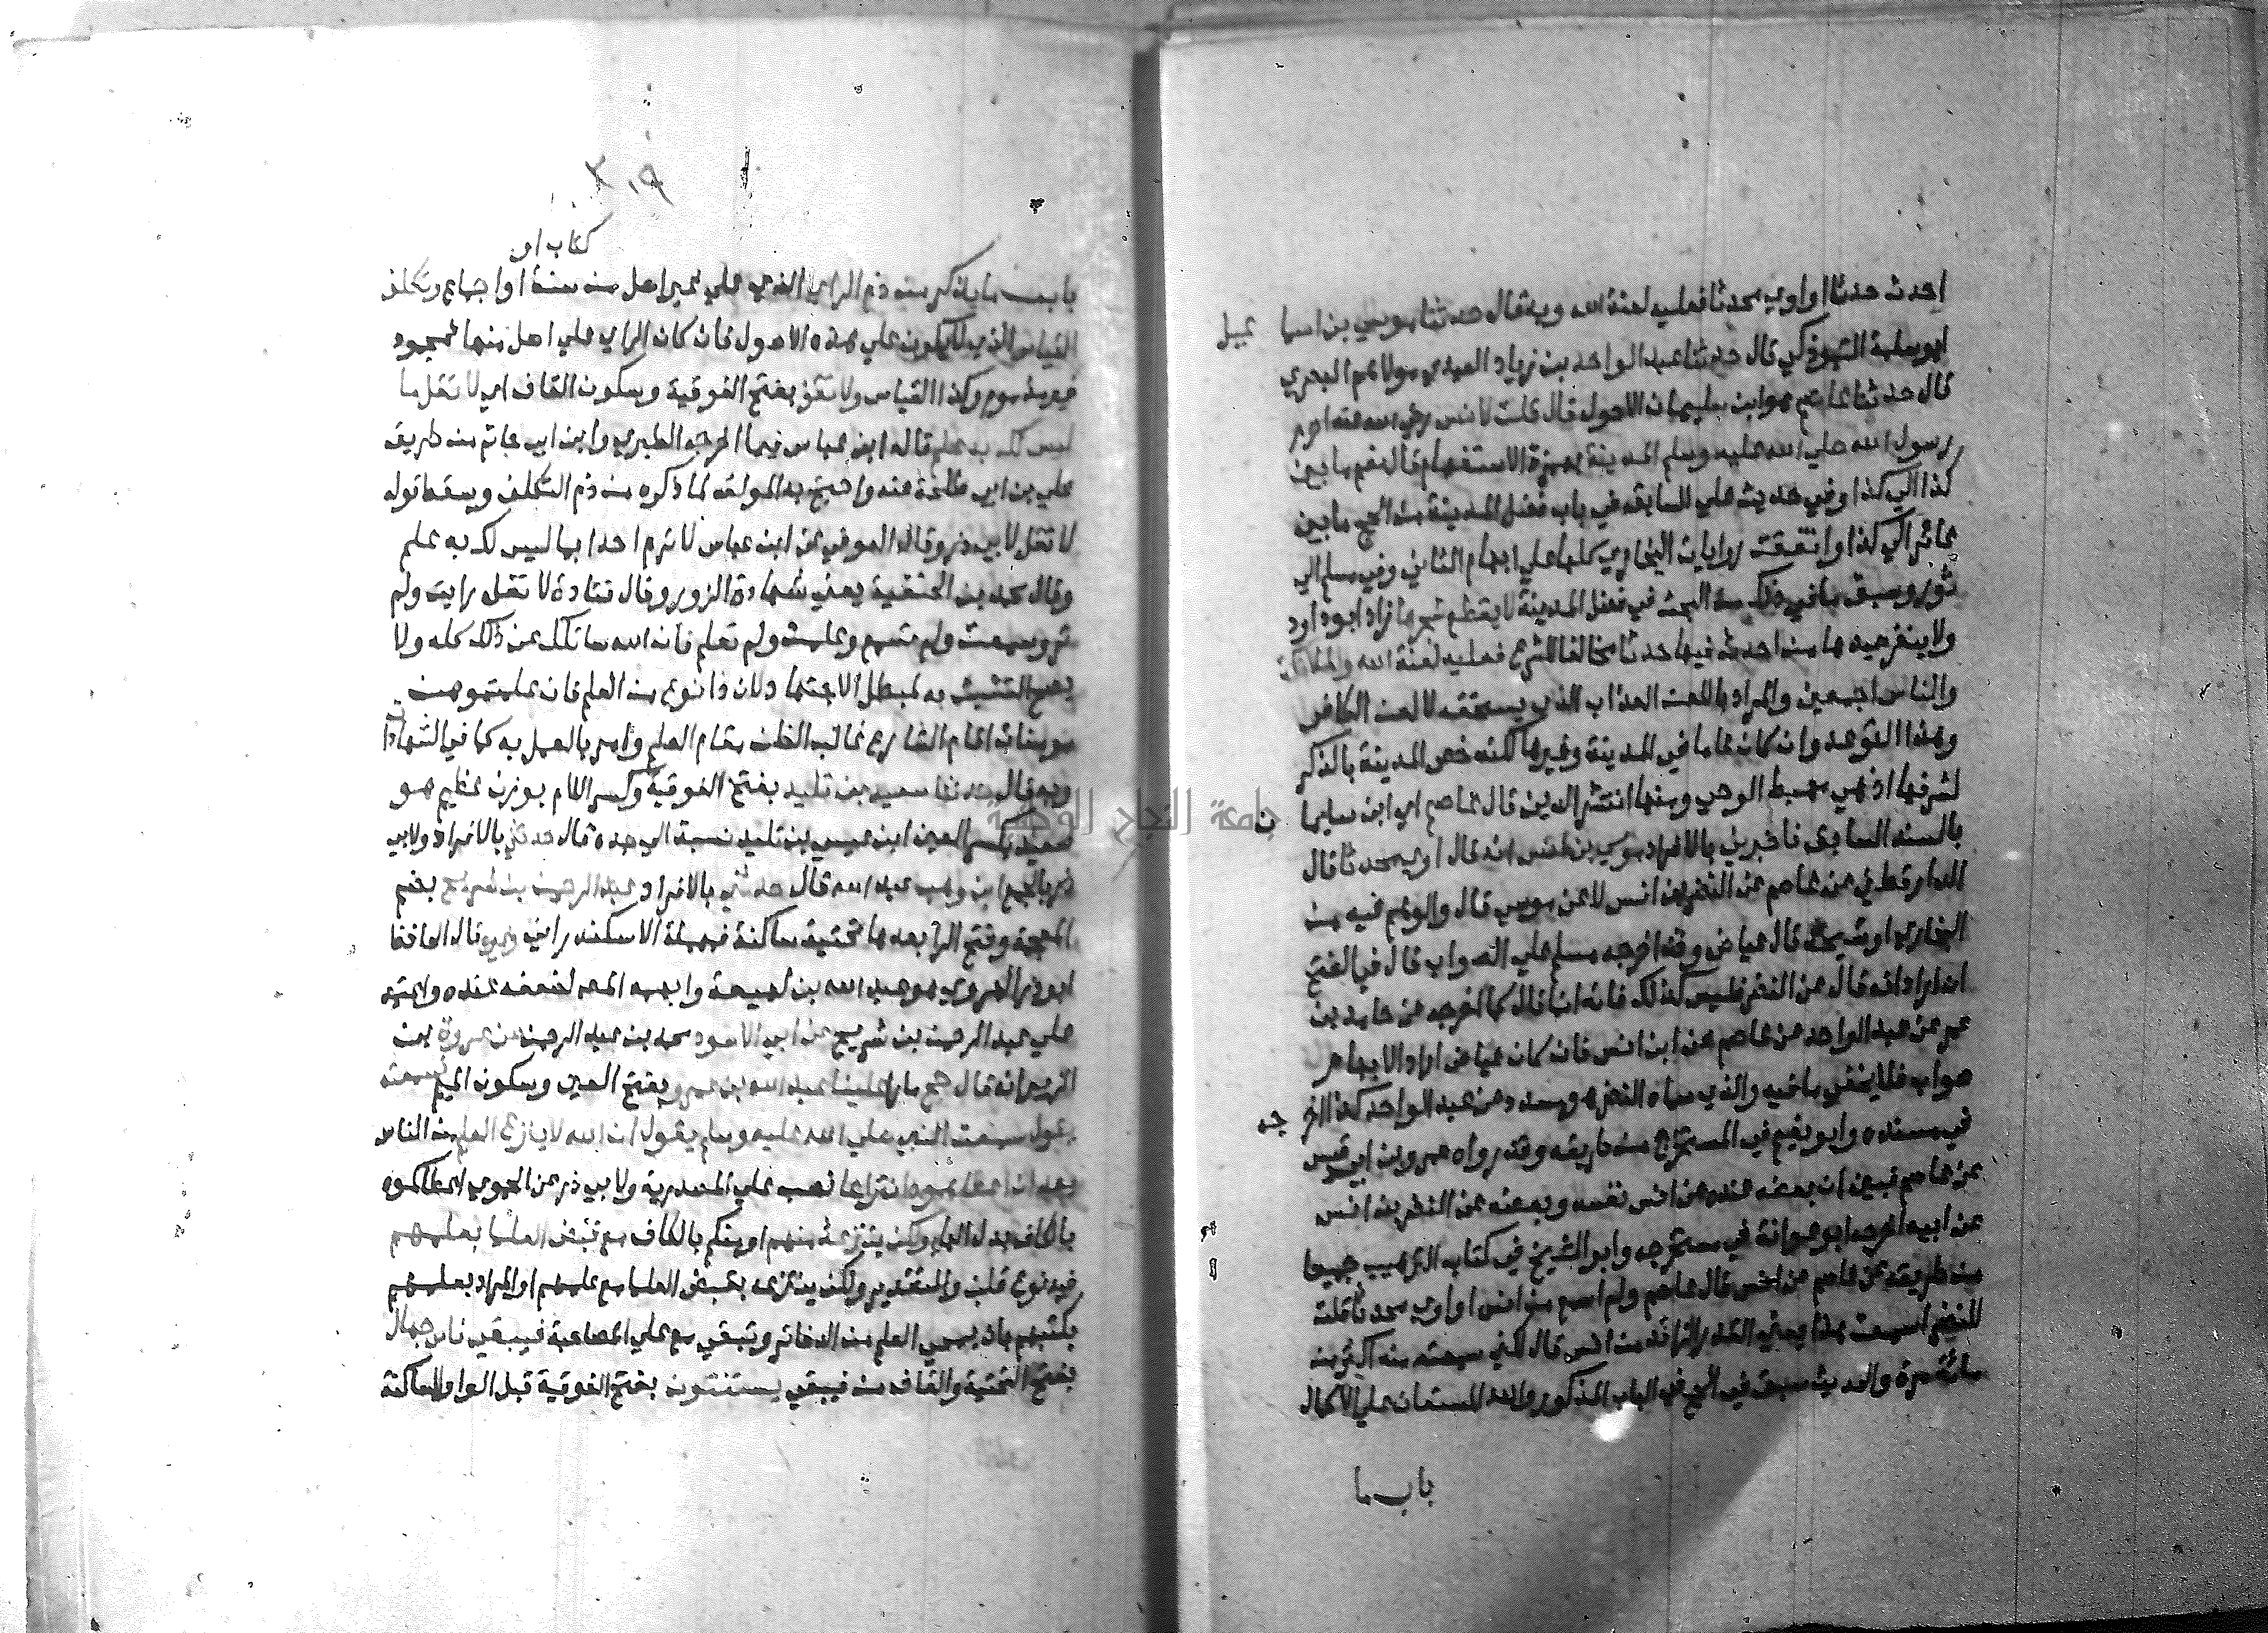 احدث حدثا او اوي محدثا فعليه لعنة الله وبه قال حدثنا موسي بن اسما عيل
ابو سلمة التبوذكي قال حدثنا عبد الواحد بن زياد العبدي مولاهم البصري
قال حدثنا عاصم هو ابن سليمان الاحول قال قلت لانس رضي الله عنه احرم
رسول الله صلي الله عليه وسلم المدينة بهمزة الاستفهام قال نعم ما بين
كذا الي كذا وفي حديث علي السابق في باب فضل المدينة من الحج ما بين
عائر الي كذا واتفقت روايات البخاري كلها علي ابهام الثاني وفي مسلم الي
ثور وسبق ما في ذلك من البحث في فضل المدينة لا يقطع شجرها زاد ابو داود
ولا ينفر صيدها من احدث فيها حدثا مخالفا للشرع فعليه لعنة الله والملائكة
والناس اجمعين والمراد باللعن العذاب الذي يستحقه لا لعن الكافر
وهذا التوعد وان كان عاما في المدينة وغيرها لكنه خص المدينة بالذكر
لشرفها اذ هي مهبط الوحي ومنها انتشر الدين قال عاصم اي ابن سليما ن
بالسند السابق فاخبرني بالافراد موسي بن انس انه قال او اوي محدثا قال
الدارقطني عن عاصم عن النضر بن انس لا عن موسي قال والوهم فيه من
البخاري او شيخه قال عياض وقد اخرجه مسلم علي الصواب قال في الفتح
ان اراد انه قال عن النضر فليس كذلك فانه انما قال كما اخرجه عن حامد بن
عمر عن عبد الواحد عن عاصم عن ابن انس فان كان عياض اراد الابهام
صواب فلا يخفي ما فيه والذي سماه النضر هو مسدد عن عبد الواحد كذا اخر جه
في مسنده وابو نعيم في المستخرج من طريقه وقد رواه عمرو بن ابي قيس
عن عاصم فبين ان بعضه عنده عن انس نفسه وبعضه عن النضر بن انس
عن ابيه اخرجه ابو عوانة في مستخرجه وابو الشيخ في كتاب الترهيب جميعا
من طريقه عن عاصم عن انس قال عاصم ولم اسمع من انس او اوي محدثا فقلت
للنضر اسمعت هذا يعني القدر الزائد من انس قال لكني سمعته منه اكثر من
مائة مرة والحديث سبق في الحج في الباب المذكور والله المستعان علي الاكمال
باب ما
٣٠٩
كتاب
باب ما يذكر من ذم الراي الذي علي غير اصل من سنة او اجماع وتكلف
القياس الذي لا يكون علي هذه الاصول فان كان الراي علي اصل منها فمحمود
غير مذموم وكذا القياس ولا تقف بفتح الفوقية وسكون القاف اي لا تقل ما
ليس لك به علم قاله ابن عباس فيما اخرجه الطبري وابن ابي حاتم من طريق
علي بن ابي طلحة عنه واحتج به المولف لما ذكره من ذم التكلف وسقط قوله
لا تقل لابي ذر وقال العوفي عن ابن عباس لا ترم احدا بما ليس لك به علم
وقال محمد بن الحنفية يعني شهادة الزور وقال قتادة لا تقل رايت ولم
تر وسمعت ولم تسمع وعلمت ولم تعلم فان الله سائلك عن ذلك كله ولا
يصح التشبث به لمبطل الاجتهاد لان ذا نوع من العلم فان علمتموهن
مومنات اقام الشارع غالب الظن مقام العلم وامر بالعمل به كما في الشهادات
وبه قال حدثنا سعيد بن تليد بفتح الفوقية وكسر اللام بوزن عظيم هو
سعيد بكسر العين ابن عيسي بن تليد نسبة الي جده قال حدثني بالافراد ولابي
ذر بالجمع ابن وهب عبد الله قال حدثني بالافراد عبد الرحمن بن شريح بضم
المعجمة وفتح الراء بعدها تحتية ساكنة فمهملة الاسكندراني وغيره قال الحافظ
ابو ذر الهروي هو عبد الله بن لهيعة وابهمه المص لضعفه عنده واعتمد
علي عبد الرحمن بن شريح عن ابي الاسود محمد بن عبد الرحمن عن عروة بن
الزبير انه قال حج مارا علينا عبد الله بن عمرو بفتح العين وسكون الميم فسمعته
يقول سمعت النبي صلي الله عليه وسلم يقول ان الله لا ينزع العلم من الناس
بعد ان اعطاهموه انتزاعا نصب علي المصدرية ولابي ذر عن الحموي اعطاكموه
بالكاف بدل الهاء ولكن ينتزعه منهم او منكم بالكاف مع قبض العلما بعلمهم
فيه نوع قلب والتقدير ولكن ينتزعه بقبض العلما مع علمهم او المراد بعلمهم
بكتبهم بان يمحي العلم من الدفاتر وتبقي مع علي المصاحبة فيبقي ناس جهال
بفتح التحتية والقاف من فيبقي يستفتون بفتح الفوقية قبل الواو الساكنة
جامعة النجاح الوطنية